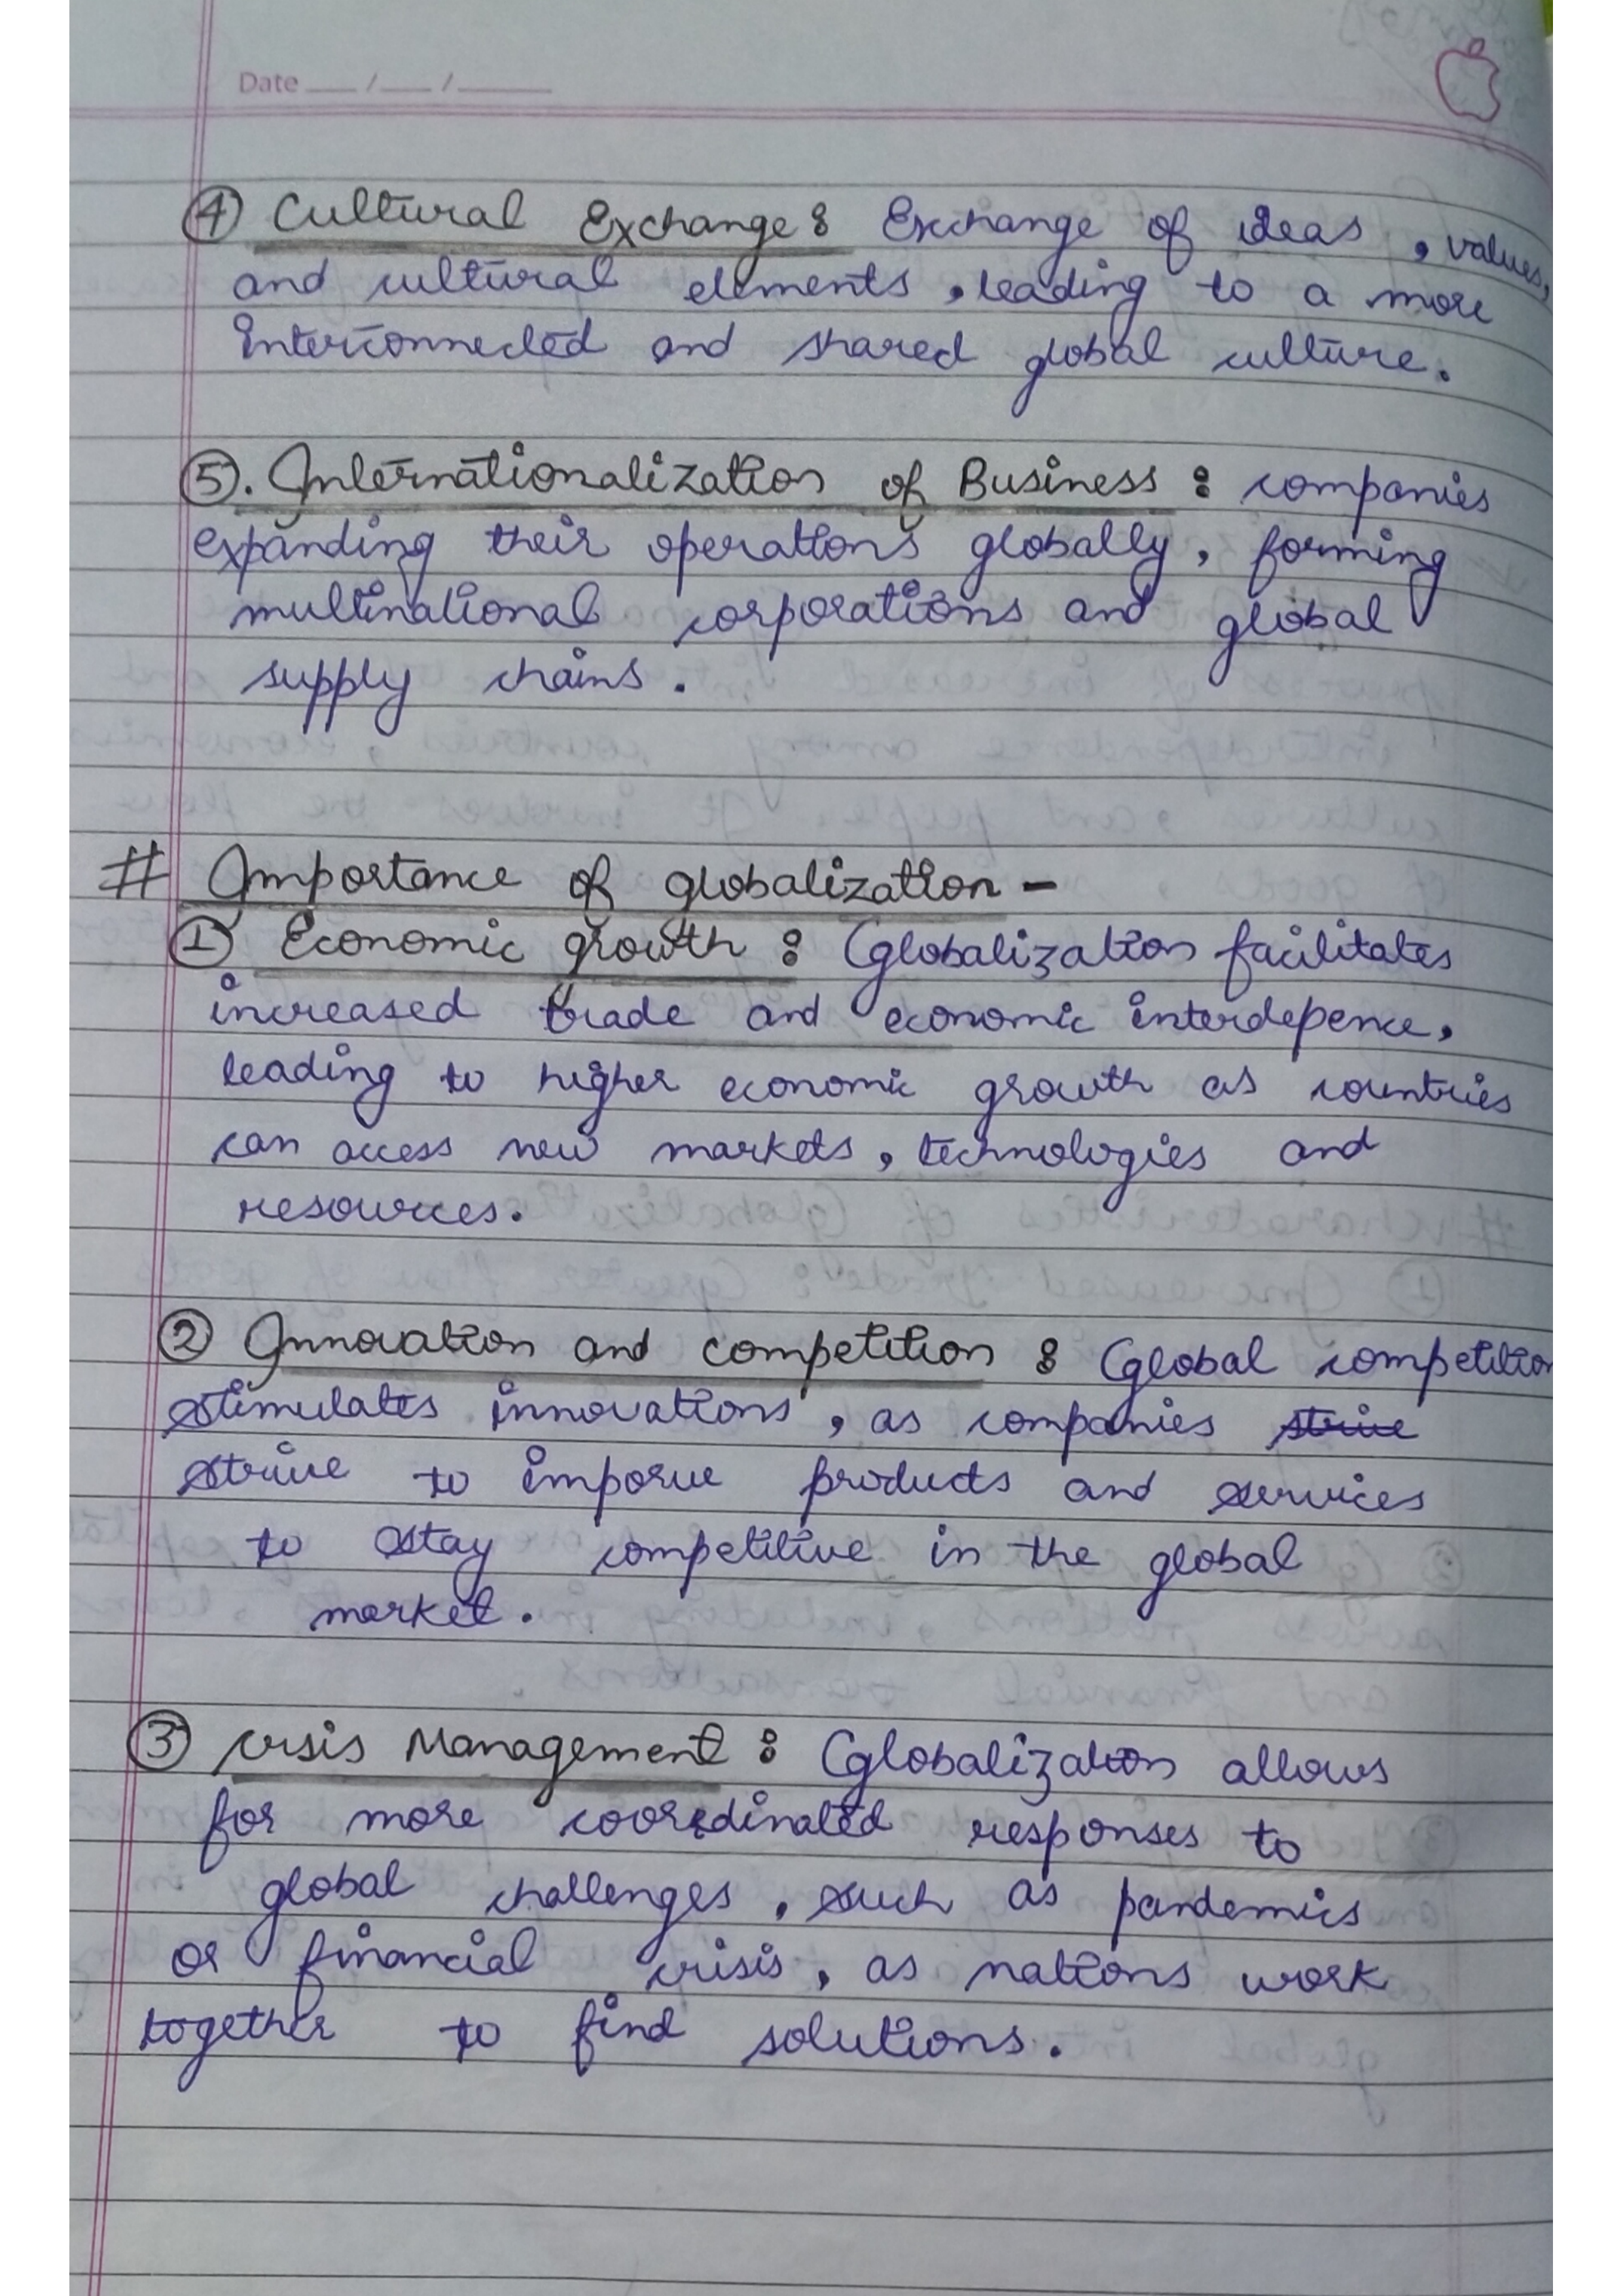 Date __/__/____
④ Cultural Exchange : Exchange of ideas, values,
and cultural elements, leading to a more
interconnected and shared global culture.
⑤. Internationalization of Business : companies
expanding their operations globally, forming
multinational corporations and global
supply chains.
# Importance of globalization -
① Economic growth : Globalization facilitates
increased trade and economic interdepence,
leading to higher economic growth as countries
can access new markets, technologies and
resources.
② Innovation and competition : Global competition
stimulates innovations, as companies strive
strive to imporve products and services
to stay competitive in the global
market.
③ crisis Management : Globalization allows
for more coordinated responses to
global challenges, such as pandemics
or financial crisis, as nations work
together to find solutions.